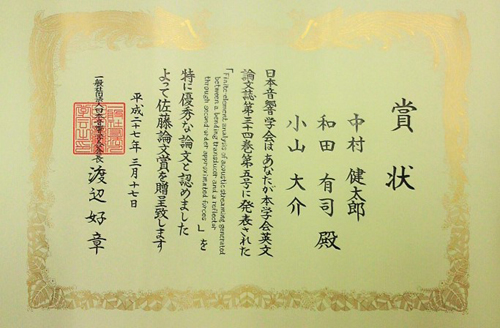 賞状
中村 健太郎
和田 有司 殿
小山 大介
日本音響学会はあなたが本学会英文
論文誌第三十四巻第五号に発表された
「Finite-element analysis of acoustic streaming generated
between a bending transducer and a reflector
through second-order approximated forces」を
特に優秀な論文と認めました
よって佐藤論文賞を贈呈致します
平成二十七年 三月十七日
一般社団法人日本音響学会会長 渡辺 好章